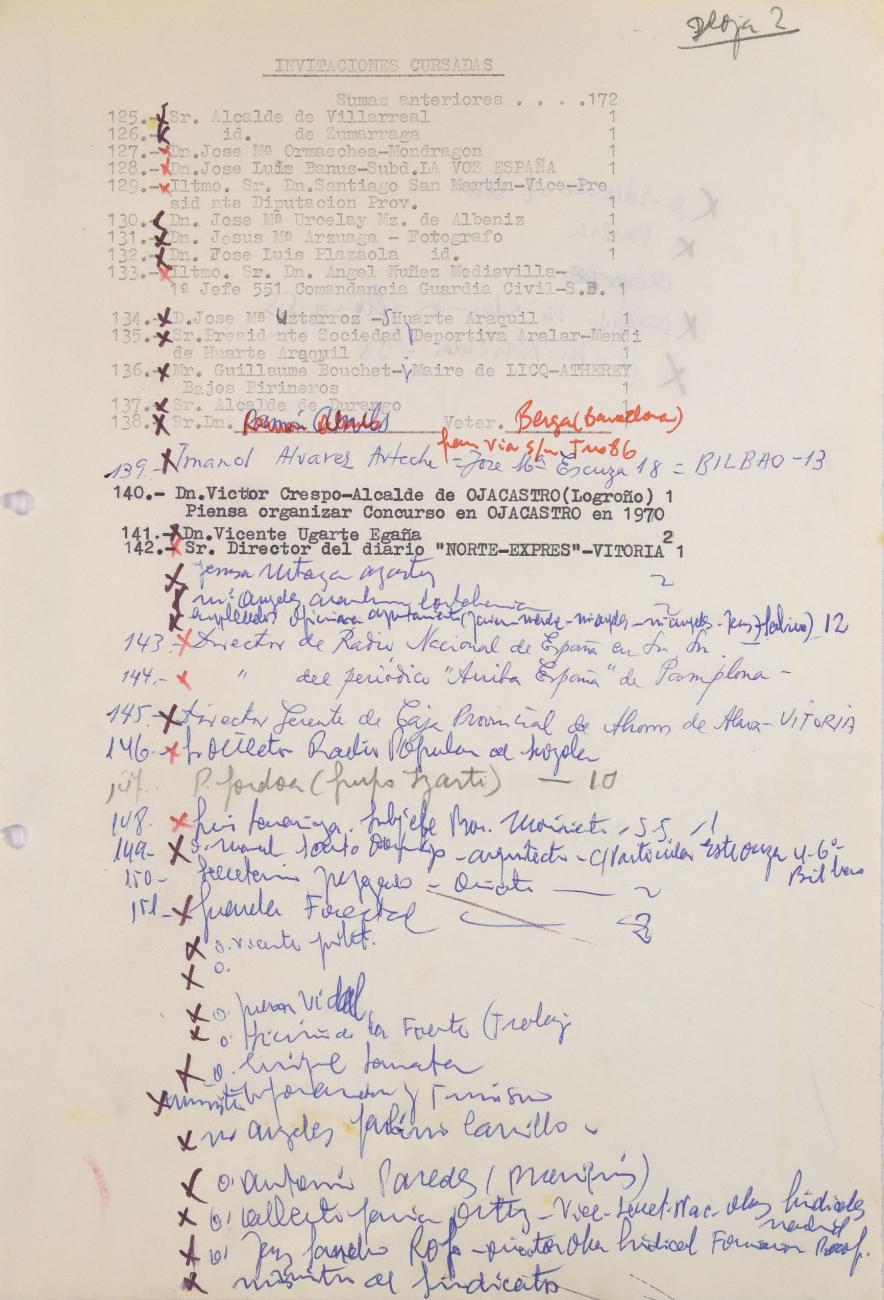 Hoja 2
INVITACIONES CURSADAS
Sumas anteriores . . . .172
125.- Sr. Alcalde de Villarreal 1
126.- id. de Zumarraga 1
127.- Dn.Jose Mª Ormaechea-Mondragon 1
128.- Dn.Jose Luis Banus-Subd.LA VOZ ESPAÑA 1
129.- Iltmo. Sr. Dn.Santiago San Martin-Vice-Pre
sid nte Diputacion Prov. 1
130.- Dn. Jose Mª Urcelay Mz. de Albeniz 1
131.- Dn. Jesus Mª Arzuaga - Fotografo 1
132.- Dn. Fose Luis Plazaola id. 1
133.- Iltmo. Sr. Dn. Angel Nuñez Mediavilla-
1º Jefe 551 Comandancia Guardia Civil-S.S. 1
134.- D.Jose Mª Uztarroz - Huarte Araquil 1
135.- Sr.Presidente Sociedad Deportiva Aralar-Mendi
de Huarte Araquil 1
136.- Mr. Guillaume Bouchet- Maire de LICQ-ATHEREY
Bajos Pirineros 1
137.- Sr. Alcalde de Durango 1
138.- Sr.Dn. Ramón Veter. Berga (Barcelona)
Gran via s/n Tno 86
139.- Imanol Alvarez Arteche = Jose Mª Escuza 18 = BILBAO-13
140.- Dn.Victor Crespo-Alcalde de OJACASTRO(Logroño) 1
Piensa organizar Concurso en OJACASTRO en 1970
141.- Dn.Vicente Ugarte Egaña 2
142.- Sr. Director del diario "NORTE-EXPRES"-VITORIA 1
2
Mª Angeles 2
empleados oficinas ayuntamiento 12
143.- Director de Radio Nacional de España en Sn. Sn.
144.- " del periódico "Arriba España" de Pamplona -
145.- Director Gerente de Caja Provincial de Ahorros de Alava-VITORIA
146.- Director Radio Popular de Loyola
147. P. Gordoa (Grupo Izarti) - 10
148. Luis Subjefe Prov. Movimiento S.S. 1
149- D. Manuel - arquitecto - C/Particular Estraunza 4-6º-
Bilbao
150- Secretario Juzgado - Oñate - 2
151- Guarda Forestal 2
D. Vicente
D.
D. Vidal
D. de la Fuente
D. Enrique
Ministro Información y Turismo
Mª Angeles Carrillo
D. Antonio Paredes
D. Alberto Garcia Ortiz - Vice-Secret. Nac. Obras Sindicales
Madrid
D. Sancho Rof - Director Obra Sindical Formacion
Ministro de Sindicatos